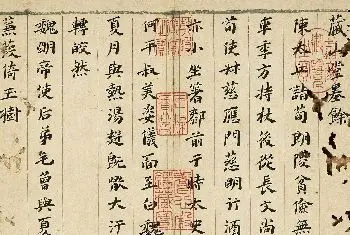 堂墨餘
陳太丘詣荀朗陵貧儉無
車季方持杖後從長文尚
荀使叔慈應門慈明行酒
亦小坐著膝前于時太史
何平叔美姿儀面至白魏
夏月與熱湯麪既噉大汗
轉皎然
魏明帝使后弟毛曾與夏
蒹葭倚玉樹